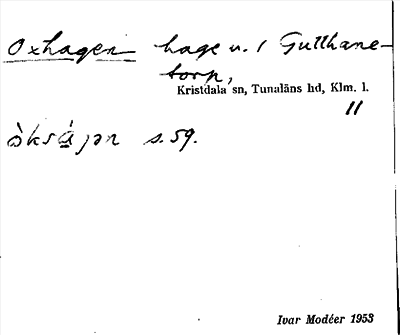 Oxhagen hage u. / Gullhane-
torp,
Kristdala sn, Tunaläns hd, Klm. l.
11
òksá̱jən s.59.
Ivar Modéer 1953